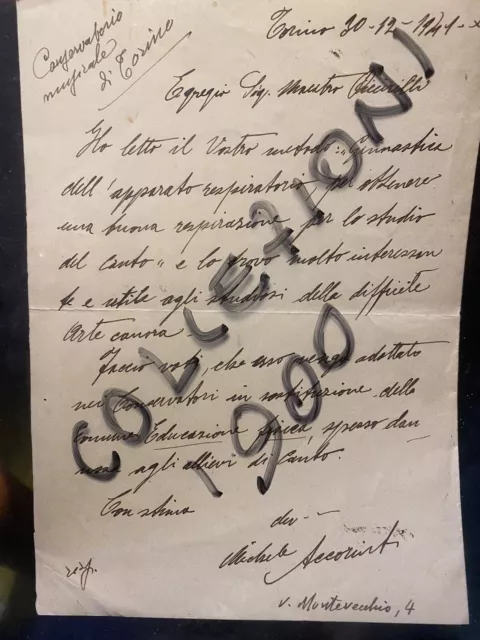 Conservatorio
musicale
di Torino
Torino 30-12-1941-x
Egregio Sig. Maestro
Ho letto il Vostro metodo: "Ginnastica
dell'apparato respiratorio, per ottenere
una buona respirazione per lo studio
del Canto" e lo trovo molto interessan
te e utile agli studiosi della difficile
Arte canora.
Faccio voti, che esso venga adottato
nei Conservatori in sostituzione della
comune Educazione fisica, spesso dan
nosa agli allievi di Canto.
Con stima
dev--
Michele Accorinti
v. Montevecchio, 4
COLLEZIONI
1900